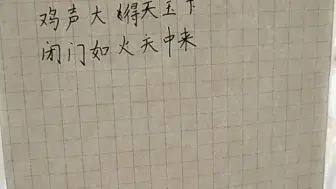 鸡声大得天宝下
闭门如火天中来